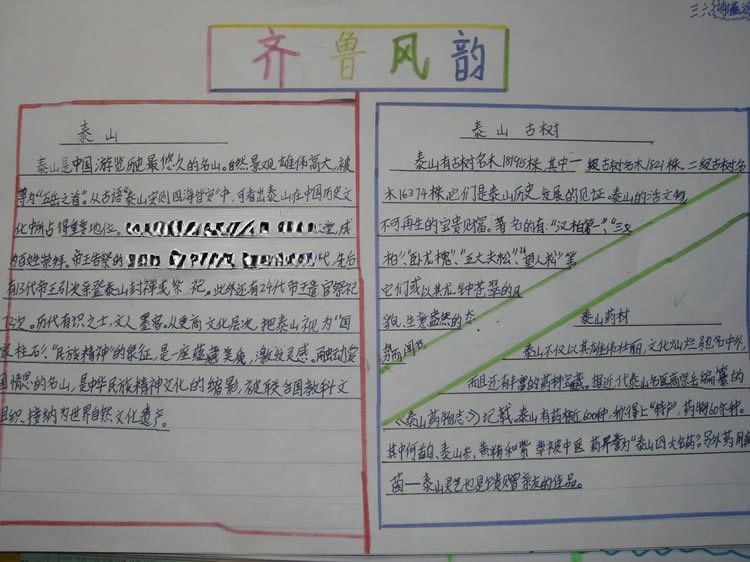 三六
齐鲁风韵
泰山
泰山是中国游览历史最悠久的名山。自然景观雄伟高大,被
尊为“五岳之首”。从古语“泰山安则四海皆安”中,可看出泰山在中国历史文
化中所占得重要地位。
成
为百姓崇拜。帝王告祭的 代,先后
有13代帝王引次亲登泰山封禅或祭祀。此外还有24代帝王遣官祭祀
72次。历代有识之士,文人墨客。从更高文化层次,把泰山视为“国
家柱石”、“民族精神”的象征,是一座蕴藏美感,激发灵感。融动爱
国情思的名山,是中华民族精神文化的缩影,被联合国教科文
组织、接纳为世界自然文化遗产。
泰山 古树
泰山有古树名木18195株,其中一级古树名木1821株,二级古树名
木16374株,它们是泰山历史发展的见证。泰山的活文物,
不可再生的宝贵财富。著名的有:“汉柏第一”、“三义
柏”“卧龙槐”、“五大夫松”、“望人松”等。
它们或以其龙钟苍翠的风
貌,生意盎然的态
势而闻名。
泰山药材
泰山不仅以其雄伟壮丽,文化灿烂驰名中外,
而且还有丰富的药材宝藏。据近代泰山名医高宗岳编纂的
《泰山药物志》记载。泰山有药物近600种,称得上“特产”药物60余种。
其中何首乌、泰山参、黄精和紫草被中医药界誉为“泰山四大名药”。另外药用真
菌—泰山灵芝也是馈赠亲友的佳品。